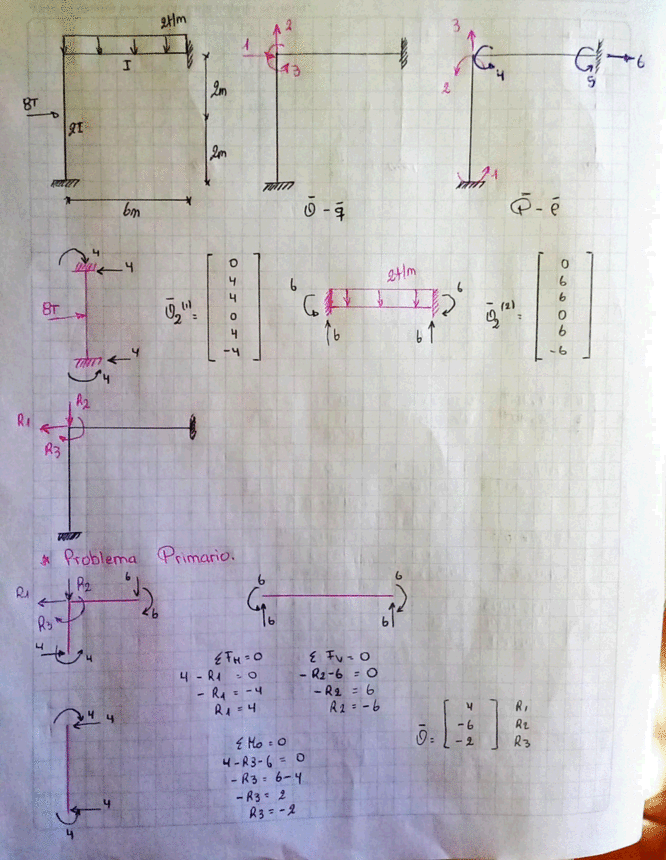 2T/m
I
8T
2I
2m
2m
6m
1
2
3
Q̄ - q̄
3
2
4
5
6
1
P̄ - ē
4
4
8T
4
4
Q̄₂⁽¹⁾ =
0
4
4
0
4
-4
2T/m
6
6
6
6
Q̄₂⁽²⁾ =
0
6
6
0
6
-6
R2
R1
R3
* Problema Primario.
R1
R2
6
R3
6
4
4
6
6
6
6
ΣFH=0
4 - R1 = 0
- R1 = -4
R1 = 4
ΣFV=0
- R2 - 6 = 0
- R2 = 6
R2 = -6
4
4
4
4
ΣMo=0
4 - R3 - 6 = 0
- R3 = 6-4
- R3 = 2
R3 = -2
Q̄ =
4 R1
-6 R2
-2 R3